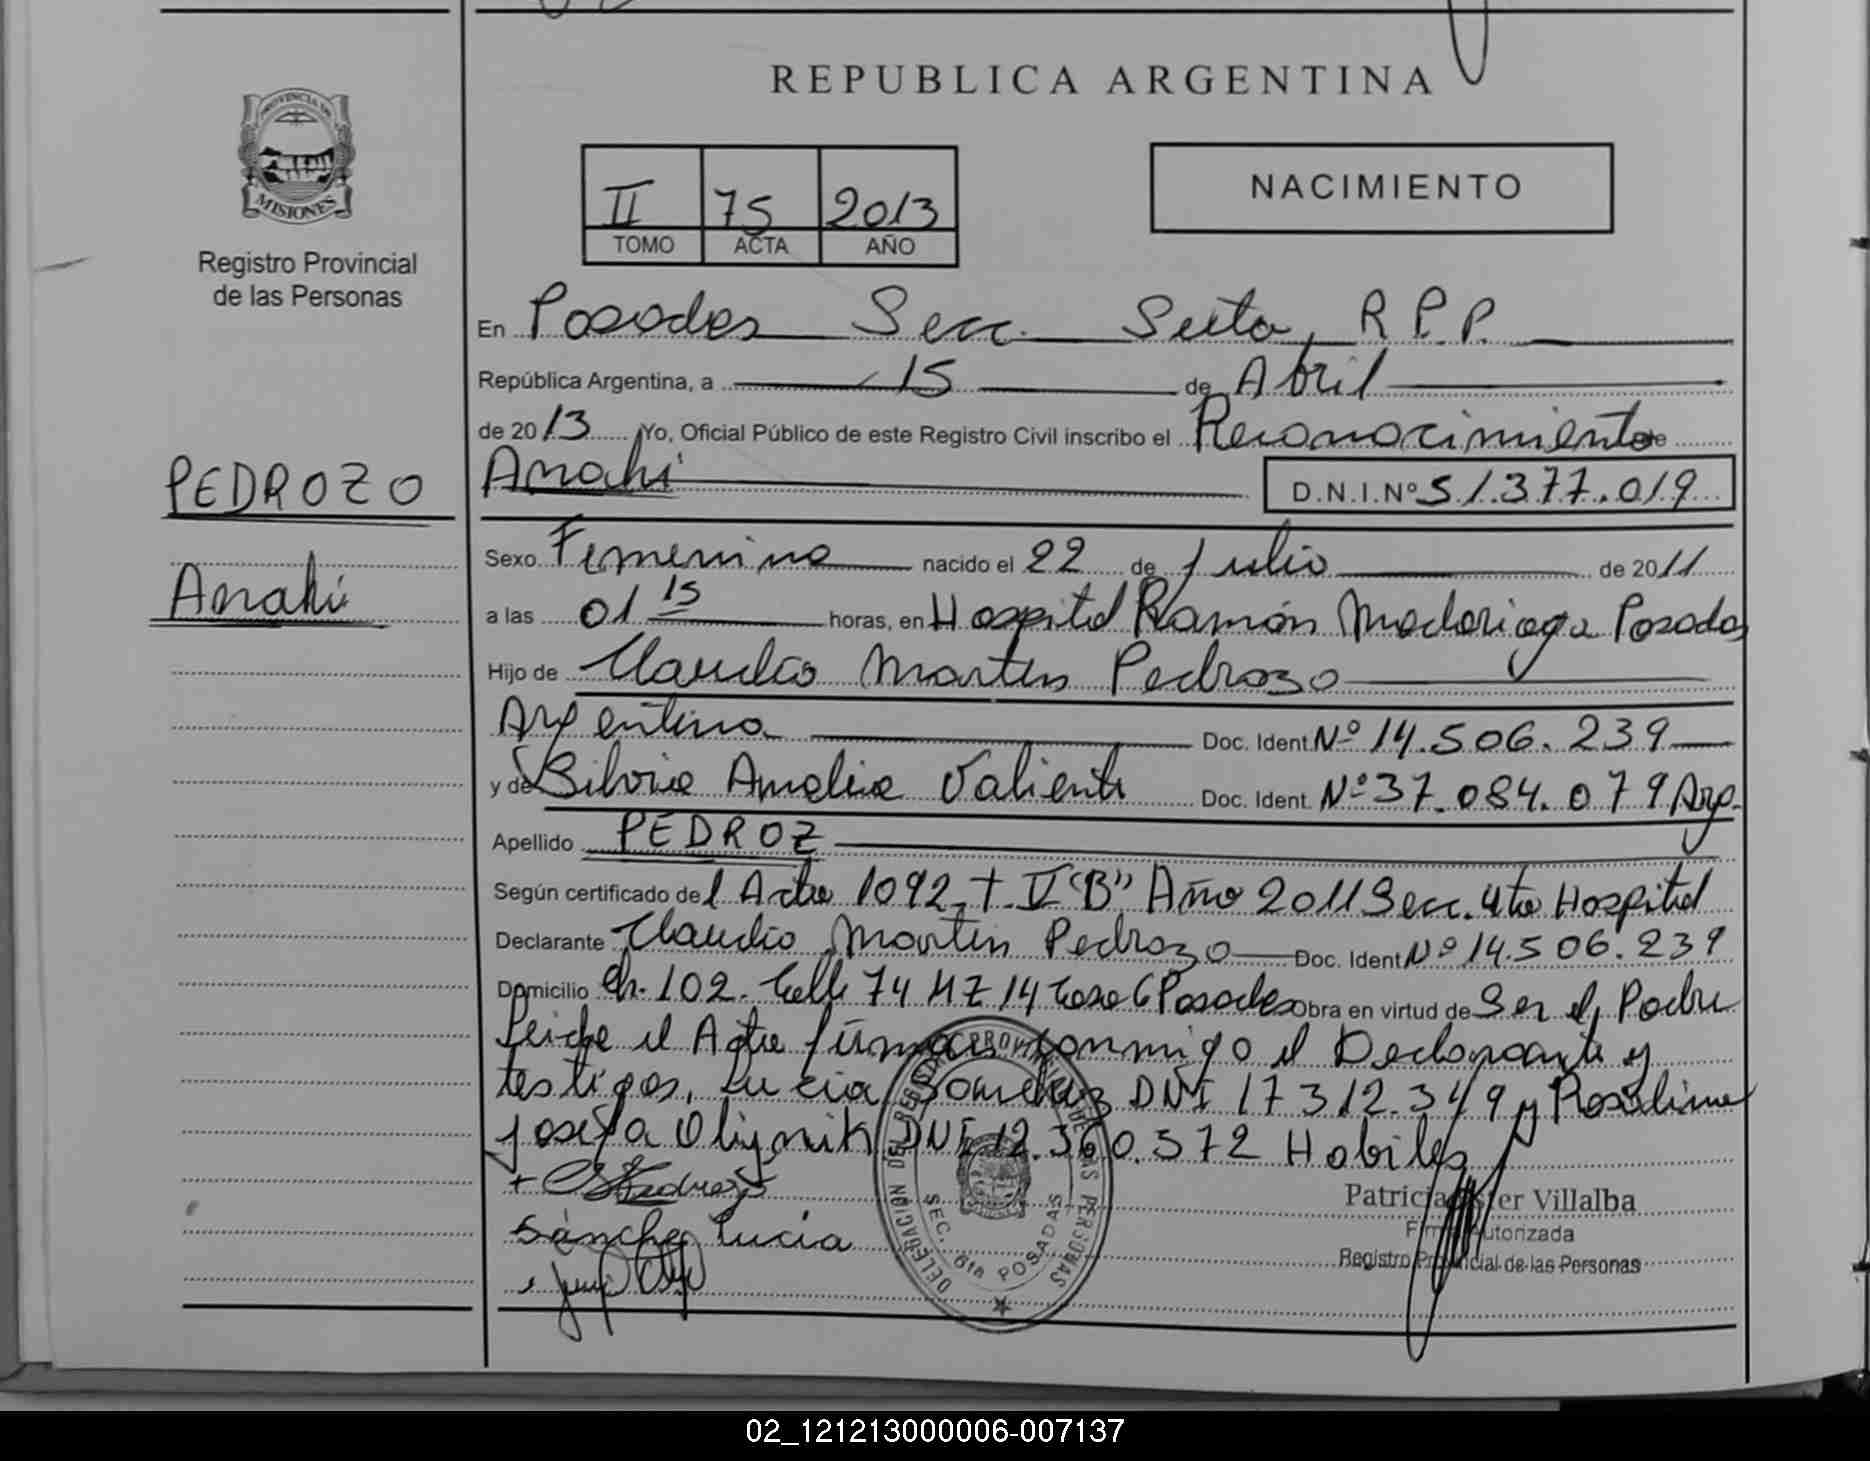 REPUBLICA ARGENTINA
PROVINCIA DE
MISIONES
Registro Provincial
de las Personas
II 75 2013
TOMO ACTA AÑO
NACIMIENTO
En Posadas Secc. Sexta, R.P.P.
República Argentina, a 15 de Abril
de 2013 Yo, Oficial Público de este Registro Civil inscribo el Reconocimiento de
PEDROZO
Anahí D.N.I.Nº 51.377.019
Anahí
Sexo Femenino nacido el 22 de Julio de 2011
a las 01 15 horas, en Hospital Ramón Madariaga Posadas
Hijo de Claudio Martin Pedrozo
Argentino Doc. Ident. Nº 14.506.239
y de Silvia Amelia Valiente Doc. Ident. Nº 37.084.079 Arg.
Apellido PEDROZ
Según certificado del Acta 1092 T. II "B" Año 2011 Secc. 4ta Hospital
Declarante Claudio Martin Pedrozo Doc. Ident Nº 14.506.239
Domicilio Ch. 102. Calle 74 MZ 14 Casa 6 Posadas Obra en virtud de Ser el Padre
Leida el Acta firman conmigo el Declarante y
testigos, Lucia DNI 17 312.349 y Rosalina
Josefa Olijnik DNI 12.360.572 Habiles
Sánchez Lucia
DELEGACIÓN DEL REGISTRO PROVINCIAL DE LAS PERSONAS
SEC. 6ta POSADAS
Patricia Ester Villalba
Firma Autorizada
Registro Provincial de las Personas
02_121213000006-007137